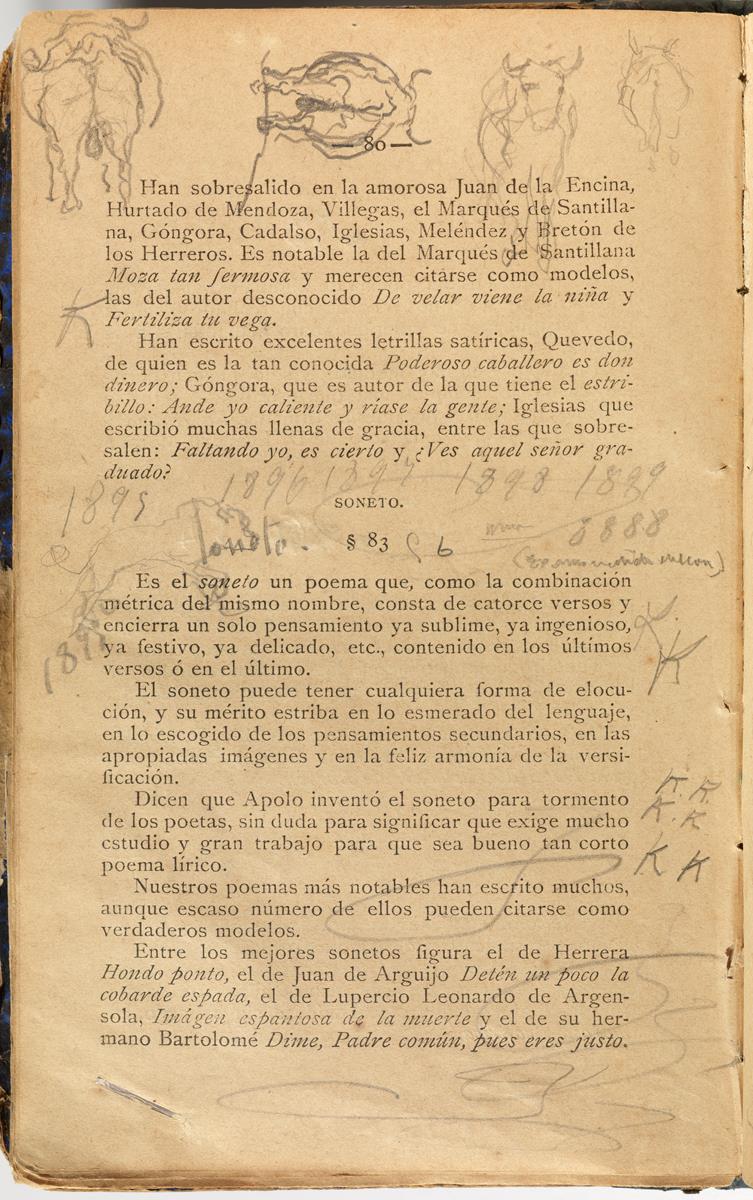 — 80 —
Han sobresalido en la amorosa Juan de la Encina,
Hurtado de Mendoza, Villegas, el Marqués de Santilla-
na, Góngora, Cadalso, Iglesias, Meléndez y Bretón de
los Herreros. Es notable la del Marqués de Santillana
Moza tan fermosa y merecen citarse como modelos,
las del autor desconocido De velar viene la niña y
K
Fertiliza tu vega.
Han escrito excelentes letrillas satíricas, Quevedo,
de quien es la tan conocida Poderoso caballero es don
dinero; Góngora, que es autor de la que tiene el estri-
billo: Ande yo caliente y ríase la gente; Iglesias que
escribió muchas llenas de gracia, entre las que sobre-
salen: Faltando yo, es cierto y ¿Ves aquel señor gra-
duado?
1895 1896 1897 1898 1899
SONETO.
Soneto. § 83 6 8888
Es el soneto un poema que, como la combinación
métrica del mismo nombre, consta de catorce versos y
encierra un solo pensamiento ya sublime, ya ingenioso,
ya festivo, ya delicado, etc., contenido en los últímos
K
versos ó en el último.
El soneto puede tener cualquiera forma de elocu-
ción, y su mérito estriba en lo esmerado del lenguaje,
en lo escogido de los pensamientos secundarios, en las
apropiadas imágenes y en la feliz armonía de la versi-
ficación.
Dicen que Apolo inventó el soneto para tormento
K. K.
de los poetas, sin duda para significar que exige mucho
K. K
estudio y gran trabajo para que sea bueno tan corto
poema lírico.
K K
Nuestros poemas más notables han escrito muchos,
aunque escaso número de ellos pueden citarse como
verdaderos modelos.
Entre los mejores sonetos figura el de Herrera
Hondo ponto, el de Juan de Arguijo Detén un poco la
cobarde espada, el de Lupercio Leonardo de Argen-
sola, Imágen espantosa de la muerte y el de su her-
mano Bartolomé Dime, Padre común, pues eres justo.